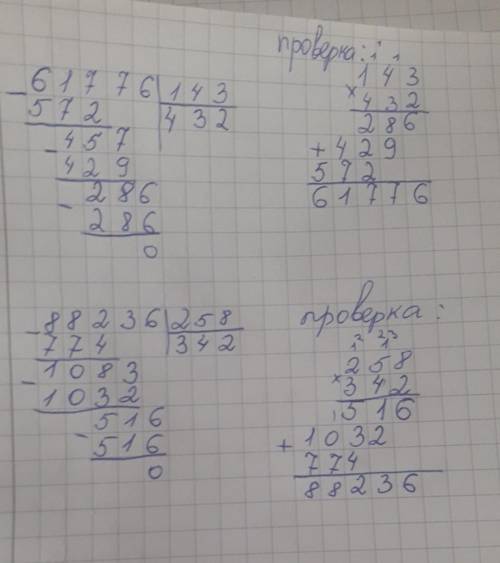 61776 143
572 432
457
429
286
286
0
проверка: 1 1
143
× 432
286
+ 429
572
61776
88236 258
774 342
1083
1032
516
516
0
проверка:
258
× 342
516
+ 1032
774
88236